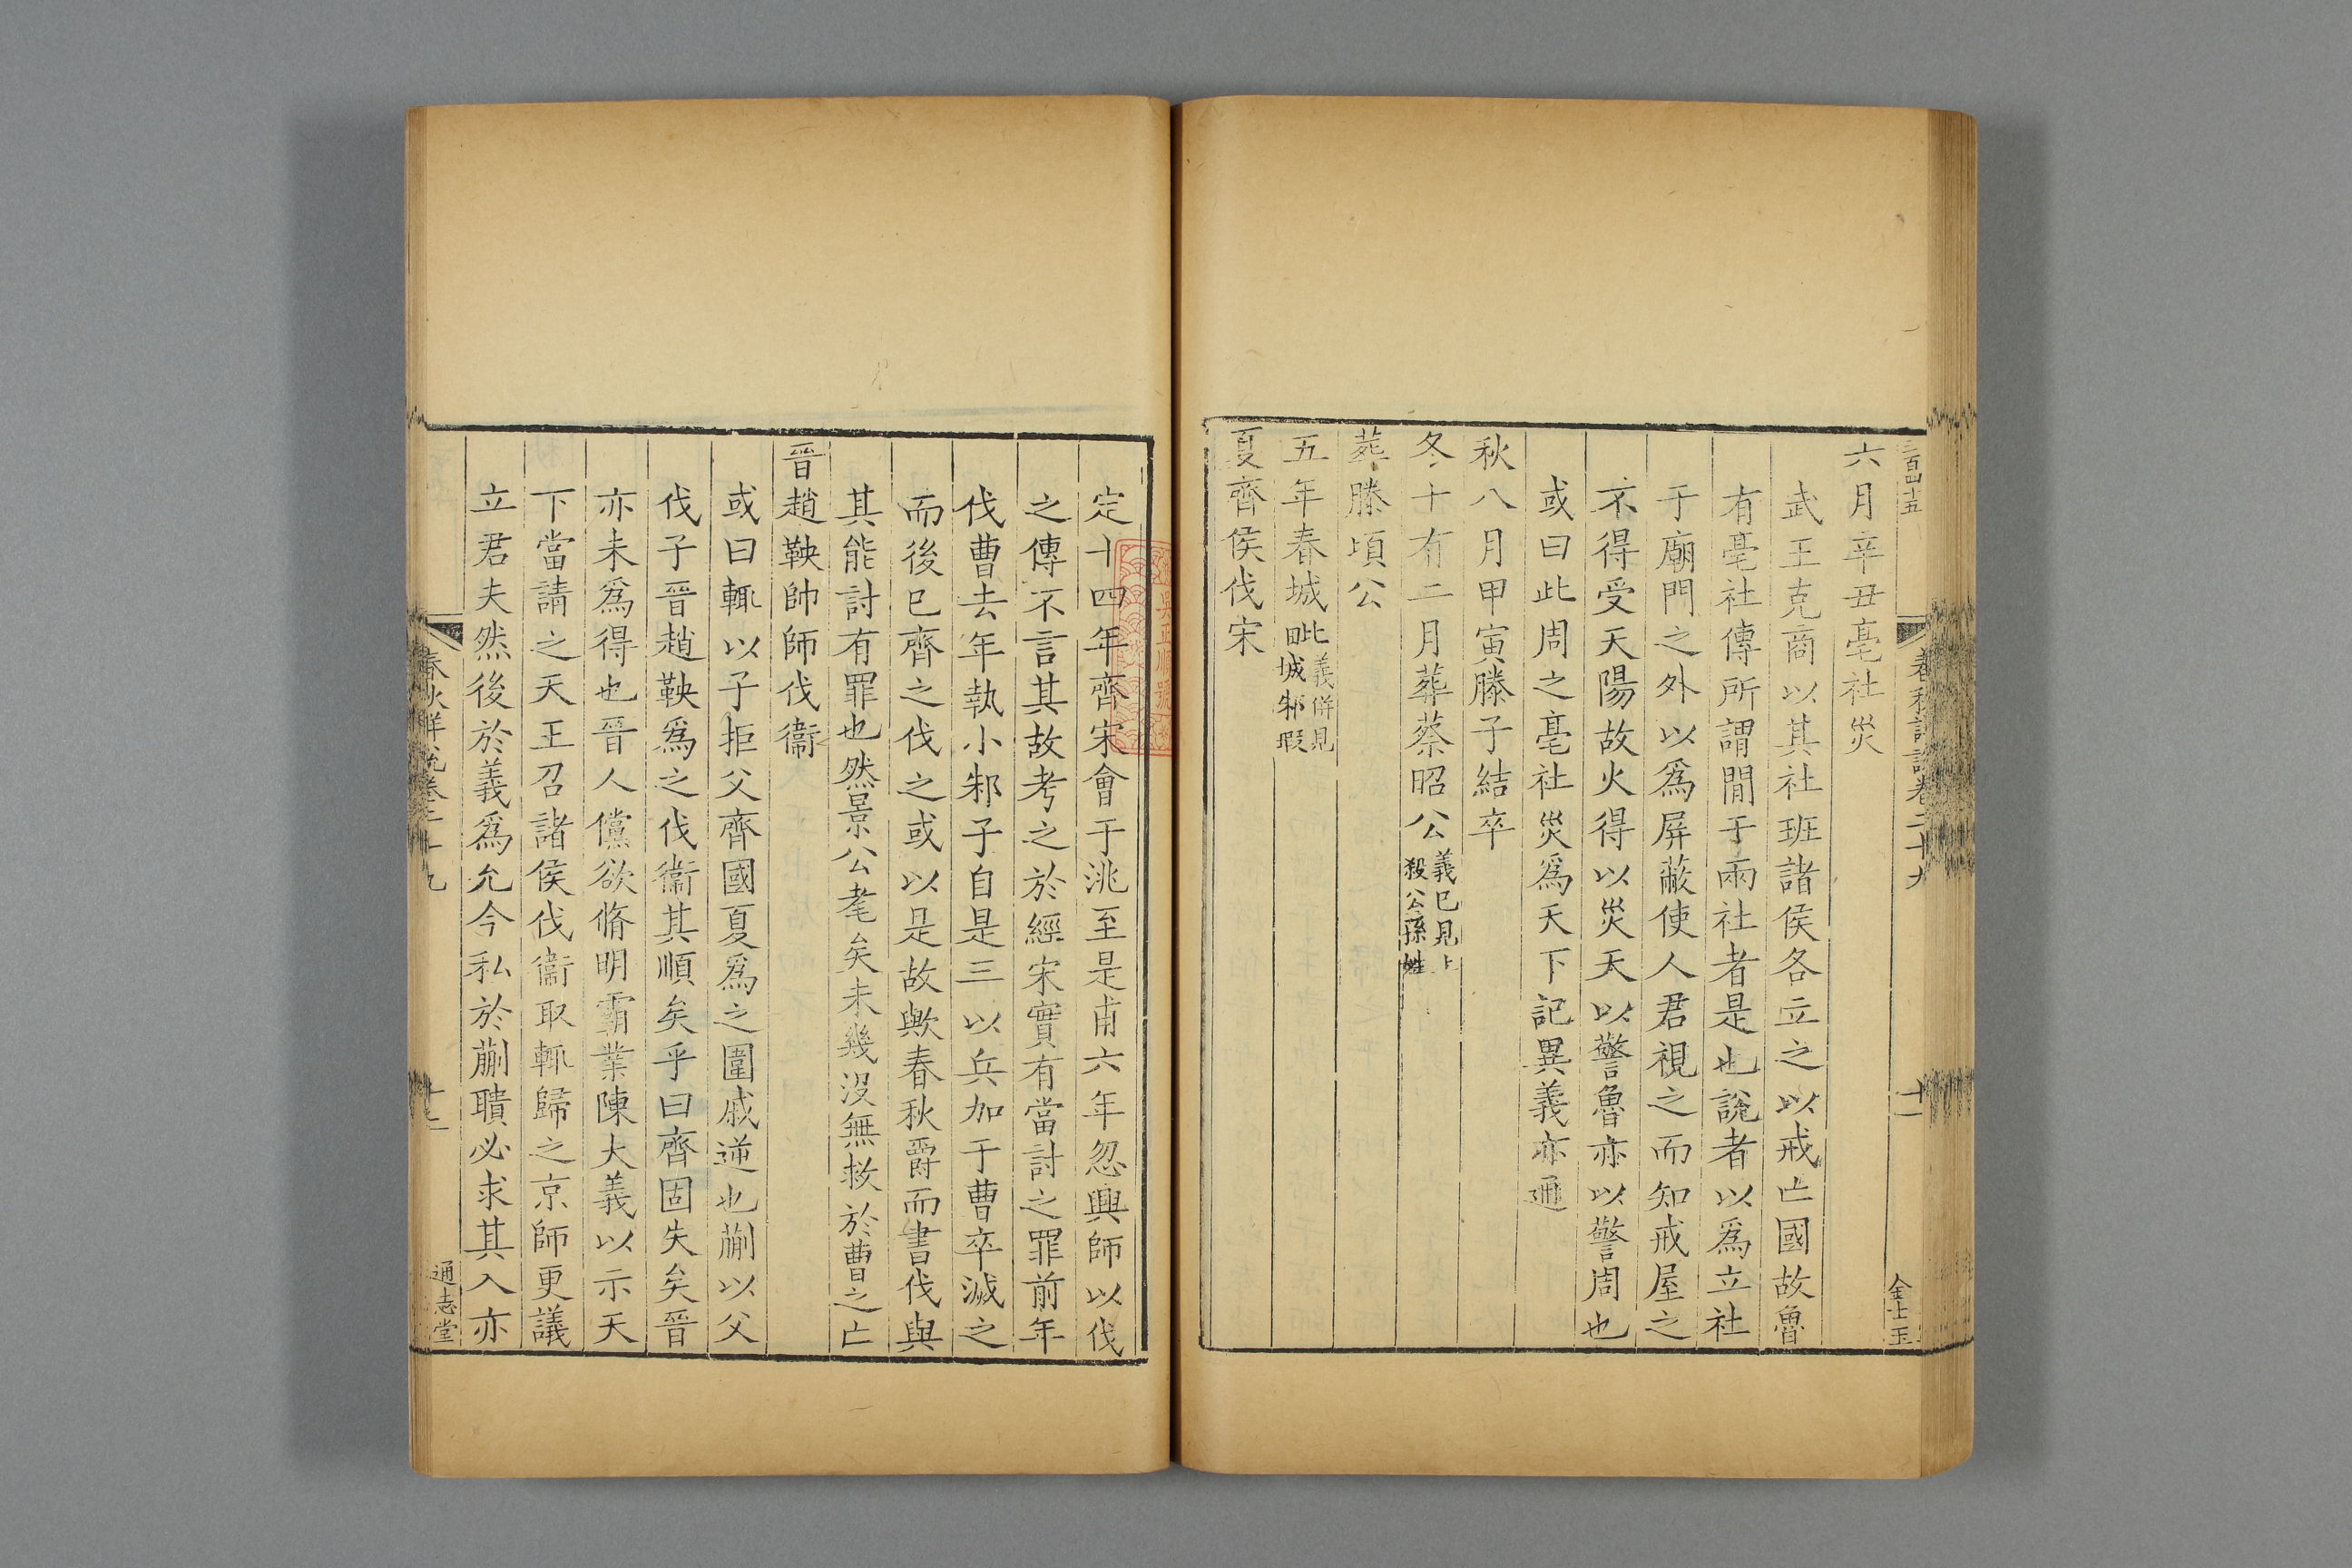 三百四十五
春秋詳說卷二十九
十一
金士玉
六月辛丑亳社災
武王克商以其社班諸侯各立之以戒亡國故魯
有亳社傳所謂閒于兩社者是也說者以爲立社
于廟門之外以爲屏蔽使人君視之而知戒屋之
不得受天陽故火得以災天以警魯亦以警周也
或曰此周之亳社災爲天下記異義亦通
秋八月甲寅滕子結卒
冬十有二月葬蔡昭公義已見上
殺公孫姓
葬滕頃公
五年春城毗義併見
城邾瑕
夏齊侯伐宋
定十四年齊宋會于洮至是甫六年忽興師以伐
之傳不言其故考之於經宋實有當討之罪前年
伐曹去年執小邾子自是三以兵加于曹卒滅之
而後已齊之伐之或以是故歟春秋爵而書伐與
其能討有罪也然景公耄矣未幾沒無救於曹之亡
晉趙鞅帥師伐衞
或曰輒以子拒父齊國夏爲之圍戚逆也蒯以父
伐子晉趙鞅爲之伐衞其順矣乎曰齊固失矣晉
亦未爲得也晉人儻欲脩明霸業陳大義以示天
下當請之天王召諸侯伐衞取輒歸之京師更議
立君夫然後於義爲允今私於蒯聵必求其入亦
春秋詳說卷二十九
十二
通志堂